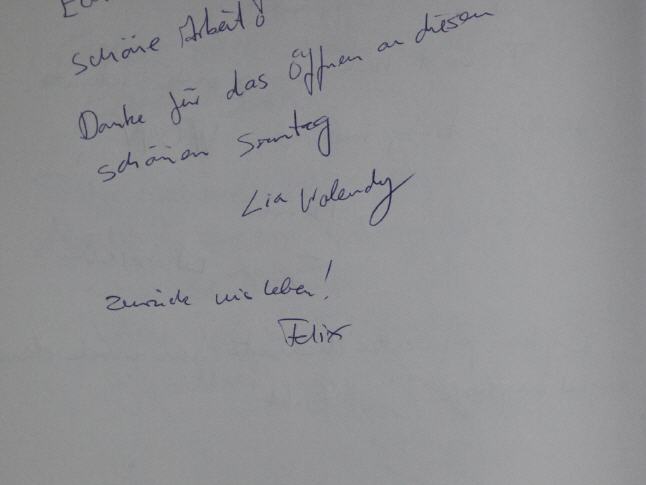 Schöne Arbeit!
Danke für das Öffnen an diesen
schönen Sonntag
Lia Walendy
zurück ins Leben!
Felix